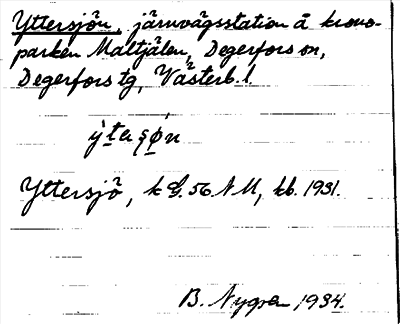 Yttersjön, järnvägsstation å krono-
parken Maltjälen, Degerfors sn,
Degerfors tg, Västerb. l.
Yttersjö, k G. 56 NM, kb. 1931.
B. Nygren 1934.